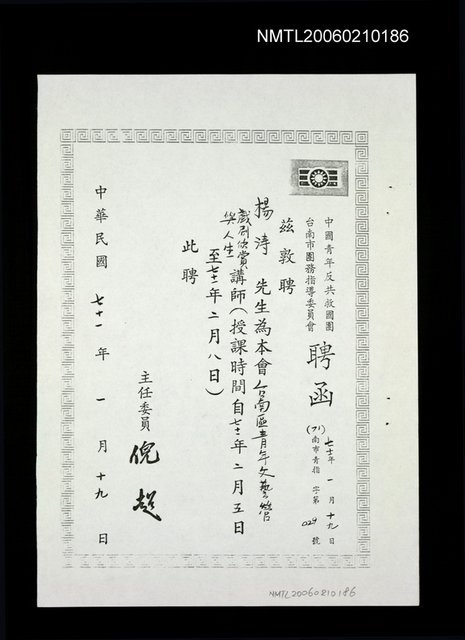 NMTL20060210186
中國青年反共救國團
台南市團務指導委員會
聘函
七十一年一月十九日
(71)南市青指字第029號
茲敦聘
楊濤先生為本會台南區青年文藝營
戲劇欣賞與人生講師(授課時間自七十一年二月五日
至七十一年二月八日)
此聘
主任委員 倪超
中華民國七十一年一月十九日
NMTL20060210186